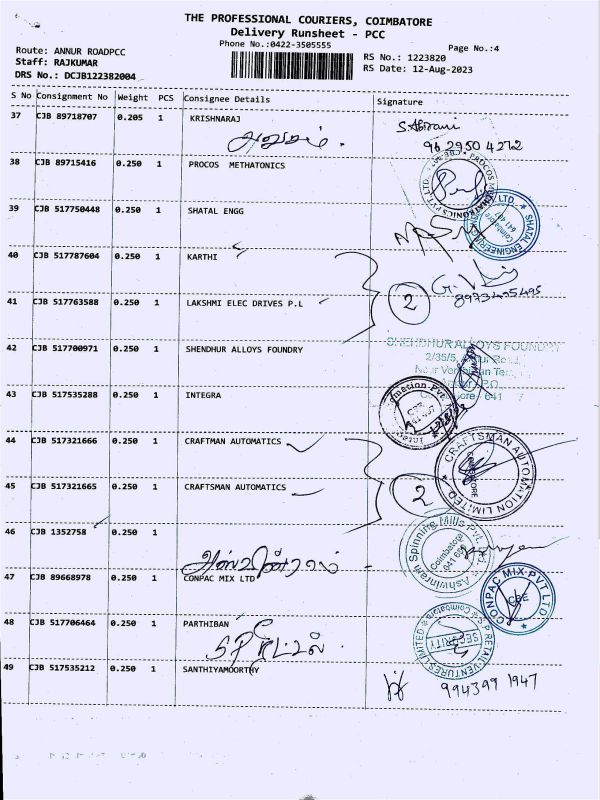 THE PROFESSIONAL COURIERS, COIMBATORE
Delivery Runsheet - PCC
Phone No.:0422-3505555
Page No.:4
Route: ANNUR ROADPCC
Staff: RAJKUMAR
DRS No.: DCJB122382004
RS No.: 1223820
RS Date: 12-Aug-2023
S No Consignment No Weight PCS Consignee Details Signature
37 CJB 89718707 0.205 1 KRISHNARAJ
96 2950 4272
38 CJB 89715416 0.250 1 PROCOS METHATONICS
39 CJB 517750448 0.250 1 SHATAL ENGG
SHATAL ENGINEERING
Coimbatore
641 407
40 CJB 517787604 0.250 1 KARTHI
2
8973495495
41 CJB 517763588 0.250 1 LAKSHMI ELEC DRIVES P.L
42 CJB 517700971 0.250 1 SHENDHUR ALLOYS FOUNDRY
SHENDHUR ALLOYS FOUNDRY
2/35/5,
641
43 CJB 517535288 0.250 1 INTEGRA
44 CJB 517321666 0.250 1 CRAFTMAN AUTOMATICS
CRAFTSMAN AUTOMATION LIMITED
2
45 CJB 517321665 0.250 1 CRAFTSMAN AUTOMATICS
46 CJB 1352758 0.250 1
Spinning Mills Pvt.
Coimbatore
47 CJB 89668978 0.250 1 CONPAC MIX LTD
CONPAC MIX PVT LTD
CBE
48 CJB 517706464 0.250 1 PARTHIBAN
RETAIL VENTURES LIMITED
Coimbatore
SECURITY
49 CJB 517535212 0.250 1 SANTHIYAMOORTHY
994399 1947